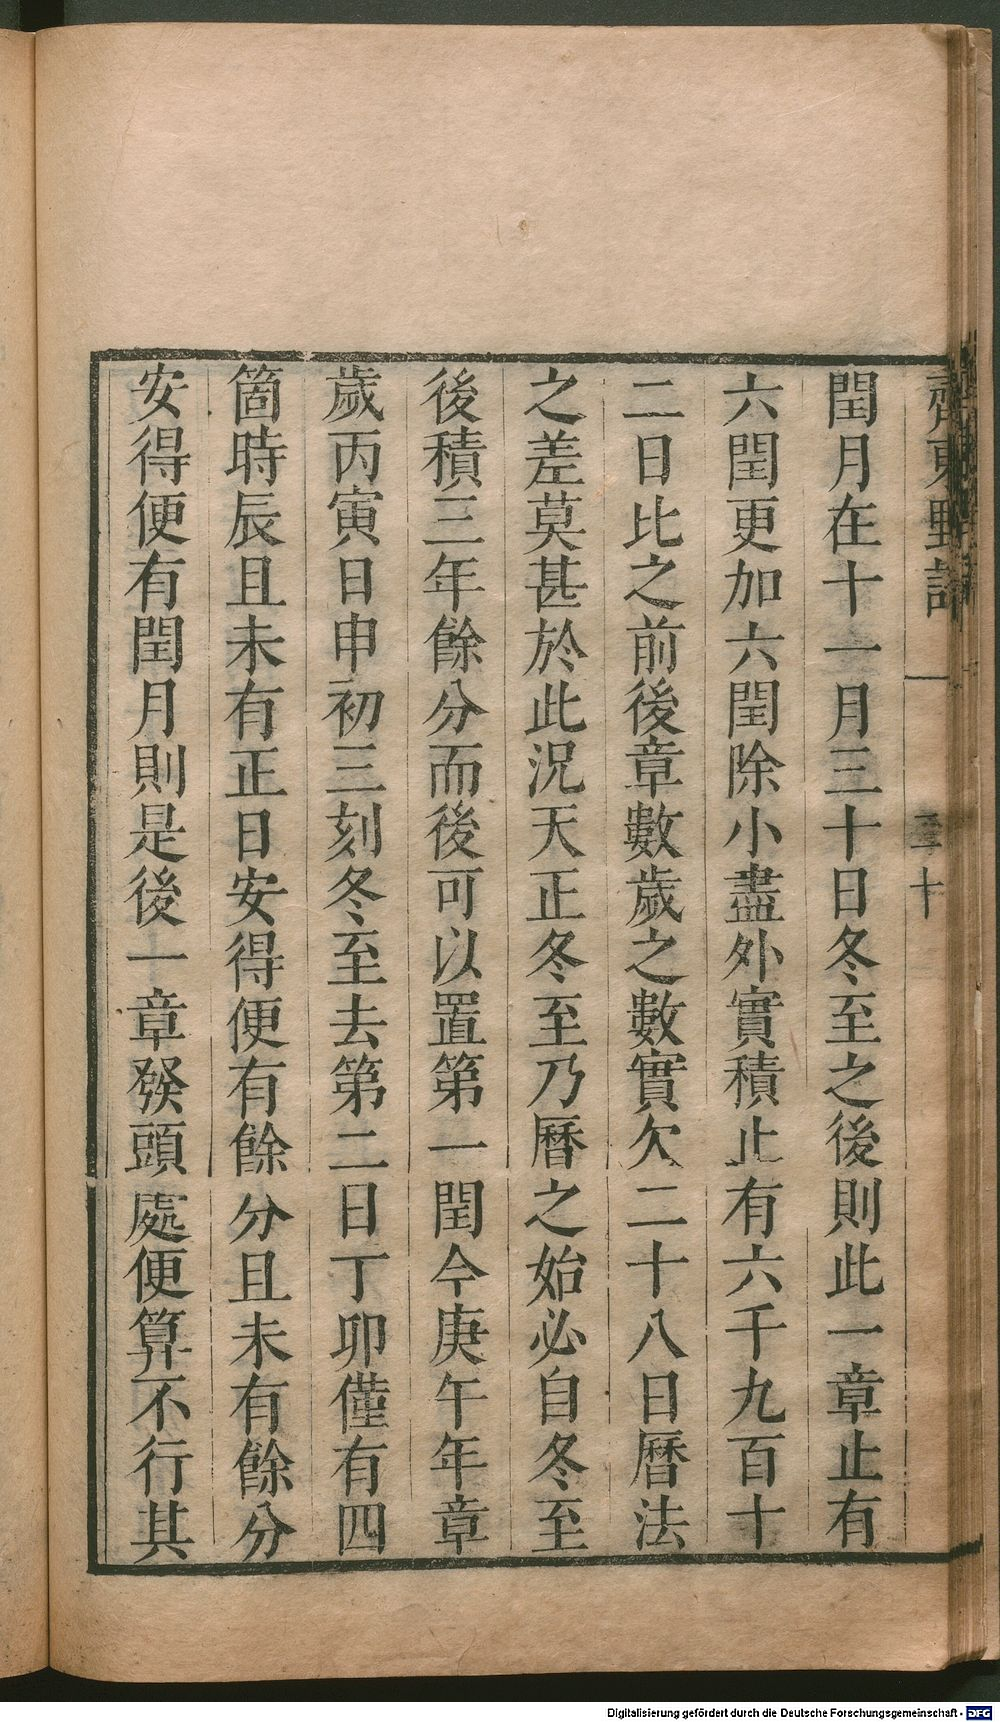 閏月在十一月三十日冬至之後則此一章止有
六閏更加六閏除小盡外實積止有六千九百十
二日比之前後章數歲之數實欠二十八日曆法
之差莫甚於此況天正冬至乃曆之始必自冬至
後積三年餘分而後可以置第一閏今庚午年章
歲丙寅日申初三刻冬至去第二日丁卯僅有四
箇時辰且未有正日安得便有餘分且未有餘分
安得便有閏月則是後一章發頭處便算不行其
Digitalisierung gefördert durch die Deutsche Forschungsgemeinschaft - DFG